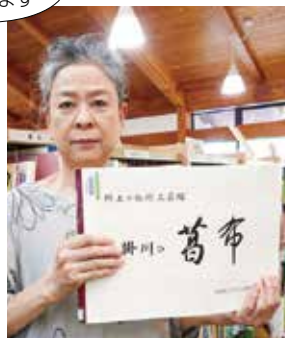 ます
郷土の伝統工芸編
掛川の 葛布